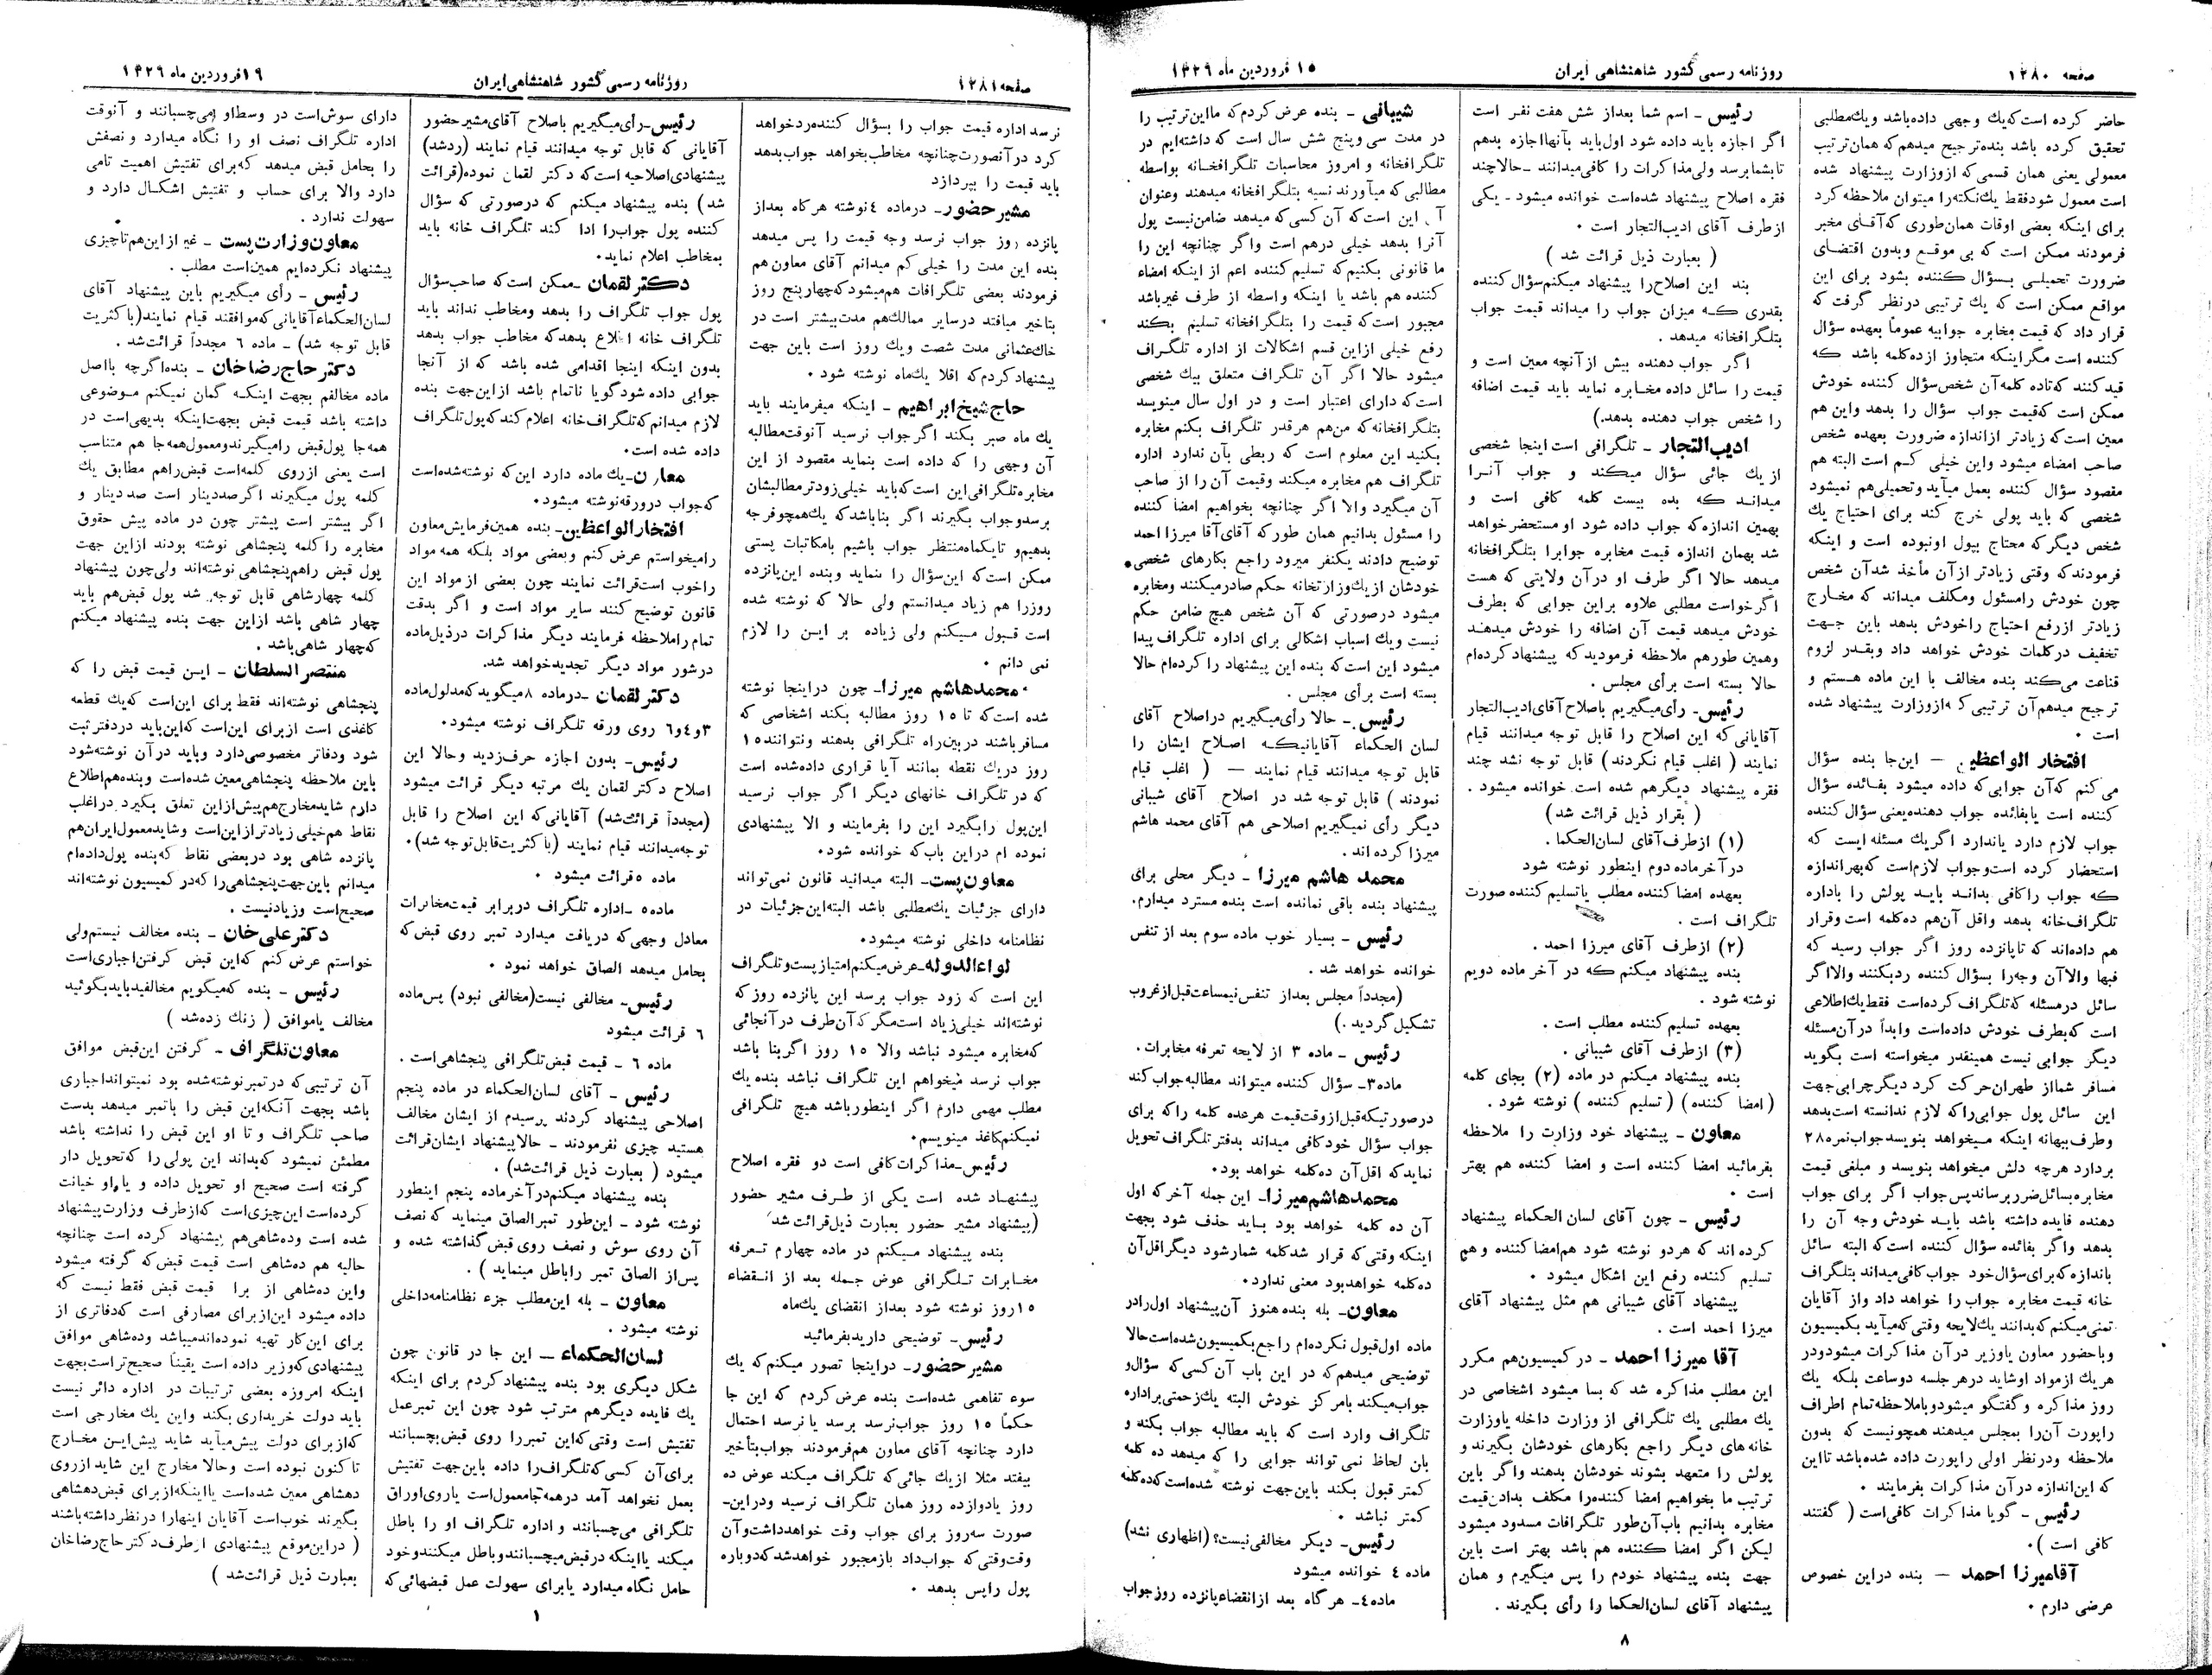 صفحه ۱۲۸۰
روزنامه رسمی کشور شاهنشاهی ایران
۱۵ فروردین ماه ۱۳۲۹
حاضر کرده است که یك وجهی داده باشد ویك مطلبی
تحقیق کرده باشد بنده ترجیح میدهم که همان ترتیب
معمولی یعنی همان قسمی که از وزارت پیشنهاد شده
است معمول شود فقط یك نکته را میتوان ملاحظه کرد
برای اینکه بعضی اوقات همان طوری که آقای مخبر
فرمودند ممکن است که بی موقع وبدون اقتضای
ضرورت تحمیلی بسؤال کننده بشود برای این
مواقع ممکن است که یك ترتیبی در نظر گرفت که
قرار داد که قیمت مخابره جوابیه عموماً بعهده سؤال
کننده است مگر اینکه متجاوز از ده کلمه باشد که
قید کنند که تا ده کلمه آن شخص سؤال کننده خودش
ممکن است که قیمت جواب سؤال را بدهد واین هم
معین است که زیادتر از اندازه ضرورت بعهده شخص
صاحب امضاء میشود واین خیلی کم است البته هم
مقصود سؤال کننده بعمل میآید وتحمیلی هم نمیشود
شخصی که باید پولی خرج کند برای احتیاج یك
شخص دیگر که محتاج بپول او نبوده است و اینکه
فرمودند که وقتی زیادتر از آن مأخذ شد آن شخص
چون خودش را مسئول ومکلف میداند که مخارج
زیادتر از رفع احتیاج را خودش بدهد باین جهت
تخفیف در کلمات خودش خواهد داد وبقدر لزوم
قناعت می کند بنده مخالف با این ماده هستم و
ترجیح میدهم آن ترتیبی که از وزارت پیشنهاد شده
است .
افتخار الواعظین — این جا بنده سؤال
می کنم که آن جوابی که داده میشود بفائده سؤال
کننده است یا بفائده جواب دهنده یعنی سؤال کننده
جواب لازم دارد یا ندارد اگر یك مسئله ایست که
استحضار کرده است وجواب لازم است که بهر اندازه
که جواب را کافی بداند باید پولش را باداره
تلگراف خانه بدهد واقل آن هم ده کلمه است وقرار
هم داده اند که تا پانزده روز اگر جواب رسید که
فبها والا آن وجه را بسؤال کننده رد بکنند والا اگر
سائل در مسئله که تلگراف کرده است فقط یك اطلاعی
است که بطرف خودش داده است وابداً در آن مسئله
دیگر جوابی نیست همینقدر میخواسته است بگوید
مسافر شما از طهران حرکت کرد دیگر چرا بی جهت
این سائل پول جوابی را که لازم ندانسته است بدهد
وطرف ببهانه اینکه میخواهد بنویسد جواب نمره ۲۸
بردارد هر چه دلش میخواهد بنویسد و مبلغی قیمت
مخابره بسائل ضرر برساند پس جواب اگر برای جواب
دهنده فایده داشته باشد باید خودش وجه آن را
بدهد واگر بفائده سؤال کننده است که البته سائل
باندازه که برای سؤال خود جواب کافی میداند بتلگراف
خانه قیمت مخابره جواب را خواهد داد واز آقایان
تمنی میکنم که بدانند یك لایحه وقتی که میآید بکمیسیون
وبا حضور معاون یا وزیر در آن مذاکرات میشود ودر
هر یك از مواد او شاید در هر جلسه دو ساعت بلکه یك
روز مذاکره و گفتگو میشود وبا ملاحظه تمام اطراف
راپورت آن را بمجلس میدهند همچو نیست که بدون
ملاحظه ودر نظر اولی راپورت داده شده باشد تا این
که این اندازه در آن مذاکرات بفرمایند .
رئیس ـ گویا مذاکرات کافی است ( گفتند
کافی است ) .
آقا میرزا احمد — بنده در این خصوص
عرضی دارم .
رئیس ـ اسم شما بعد از شش هفت نفر است
اگر اجازه باید داده شود اول باید بآنها اجازه بدهم
تا بشما برسد ولی مذاکرات را کافی میدانند ـ حالا چند
فقره اصلاح پیشنهاد شده است خوانده میشود ـ یکی
از طرف آقای ادیب التجار است .
( بعبارت ذیل قرائت شد )
بنده این اصلاح را پیشنهاد میکنم سؤال کننده
بقدری که میزان جواب را میداند قیمت جواب
بتلگرافخانه میدهد .
اگر جواب دهنده بیش از آنچه معین است و
قیمت را سائل داده مخابره نماید باید قیمت اضافه
را شخص جواب دهنده بدهد.)
ادیب التجار ـ تلگرافی است اینجا شخصی
از یك جائی سؤال میکند و جواب آنرا
میداند که بده بیست کلمه کافی است و
بهمین اندازه که جواب داده شود او مستحضر خواهد
شد بهمان اندازه قیمت مخابره جوابرا بتلگرافخانه
میدهد حالا اگر طرف او در آن ولایتی که هست
اگر خواست مطلبی علاوه براین جوابی که بطرف
خودش میدهد قیمت آن اضافه را خودش میدهد
وهمین طور هم ملاحظه فرمودید که پیشنهاد کرده ام
حالا بسته است برأی مجلس .
رئیس ـ رأی میگیریم باصلاح آقای ادیب التجار
آقایانی که این اصلاح را قابل توجه میدانند قیام
نمایند ( اغلب قیام نکردند ) قابل توجه نشد چند
فقره پیشنهاد دیگر هم شده است خوانده میشود .
( بقرار ذیل قرائت شد )
(۱) از طرف آقای لسان الحکما .
در آخر ماده دوم اینطور نوشته شود
بعهده امضا کننده مطلب یا تسلیم کننده صورت
تلگراف است .
(۲) از طرف آقای میرزا احمد .
بنده پیشنهاد میکنم که در آخر ماده دویم
نوشته شود .
بعهده تسلیم کننده مطلب است .
(۳) از طرف آقای شیبانی .
بنده پیشنهاد میکنم در ماده (۲) بجای کلمه
( امضا کننده ) ( تسلیم کننده ) نوشته شود .
معاون ـ پیشنهاد خود وزارت را ملاحظه
بفرمائید امضا کننده است و امضا کننده هم بهتر
است .
رئیس ـ چون آقای لسان الحکماء پیشنهاد
کرده اند که هر دو نوشته شود هم امضا کننده و هم
تسلیم کننده رفع این اشکال میشود .
پیشنهاد آقای شیبانی هم مثل پیشنهاد آقای
میرزا احمد است .
آقا میرزا احمد ـ در کمیسیون هم مکرر
این مطلب مذاکره شد که بسا میشود اشخاصی در
یك مطلبی یك تلگرافی از وزارت داخله یا وزارت
خانه های دیگر راجع بکارهای خودشان بگیرند و
پولش را متعهد بشوند خودشان بدهند واگر باین
ترتیب ما بخواهیم امضا کننده را مکلف بدادن قیمت
مخابره بدانیم باب آن طور تلگرافات مسدود میشود
لیکن اگر امضا کننده هم باشد بهتر است باین
جهت بنده پیشنهاد خودم را پس میگیرم و همان
پیشنهاد آقای لسان الحکما را رأی بگیرند .
شیبانی ـ بنده عرض کردم که ما این ترتیب را
در مدت سی و پنج شش سال است که داشته ایم در
تلگرافخانه و امروز محاسبات تلگرافخانه بواسطه
مطالبی که میآورند نسیه بتلگرافخانه میدهند وعنوان
این است که آن کسی که میدهد ضامن نیست پول
آنرا بدهد خیلی درهم است واگر چنانچه این را
ما قانونی بکنیم که تسلیم کننده اعم از اینکه امضاء
کننده هم باشد یا اینکه واسطه از طرف غیر باشد
مجبور است که قیمت را بتلگرافخانه تسلیم بکند
رفع خیلی از این قسم اشکالات از اداره تلگراف
میشود حالا اگر آن تلگراف متعلق بیك شخصی
است که دارای اعتبار است و در اول سال مینویسد
بتلگرافخانه که من هم هر قدر تلگراف بکنم مخابره
بکنید این معلوم است که ربطی بآن ندارد اداره
تلگراف هم مخابره میکند وقیمت آن را از صاحب
آن میگیرد والا اگر چنانچه بخواهیم امضا کننده
را مسئول بدانیم همان طور که آقای آقا میرزا احمد
توضیح دادند یکنفر میرود راجع بکارهای شخصی
خودشان از یك وزارتخانه حکم صادر میکنند ومخابره
میشود در صورتی که آن شخص هیچ ضامن حکم
نیست ویك اسباب اشکالی برای اداره تلگراف پیدا
میشود این است که بنده این پیشنهاد را کرده ام حالا
بسته است برأی مجلس .
رئیس ـ حالا رأی میگیریم در اصلاح آقای
لسان الحکماء آقایانیکه اصلاح ایشان را
قابل توجه میدانند قیام نمایند — ( اغلب قیام
نمودند ) قابل توجه شد در اصلاح آقای شیبانی
دیگر رأی نمیگیریم اصلاحی هم آقای محمد هاشم
میرزا کرده اند .
محمد هاشم میرزا ـ دیگر محلی برای
پیشنهاد بنده باقی نمانده است بنده مسترد میدارم.
رئیس ـ بسیار خوب ماده سوم بعد از تنفس
خوانده خواهد شد .
(مجدداً مجلس بعد از تنفس نیمساعت قبل از غروب
تشکیل گردید .)
رئیس ـ ماده ۳ از لایحه تعرفه مخابرات.
ماده ۳ـ سؤال کننده میتواند مطالبه جواب کند
در صورتیکه قبل از وقت قیمت هر عده کلمه را که برای
جواب سؤال خود کافی میداند بدفتر تلگراف تحویل
نماید که اقل آن ده کلمه خواهد بود.
محمد هاشم میرزا ـ این جمله آخر که اول
آن ده کلمه خواهد بود باید حذف شود بجهت
اینکه وقتی که قرار شد کلمه شمار شود دیگر اقل آن
ده کلمه خواهد بود معنی ندارد.
معاون ـ بله بنده هنوز آن پیشنهاد اول را در
ماده اول قبول نکرده ام راجع بکمیسیون شده است حالا
توضیحی میدهم که در این باب آن کسی که سؤال و
جواب میکند با مرکز خودش البته یك زحمتی بر اداره
تلگراف وارد است که باید مطالبه جواب بکند و
بان لحاظ نمی تواند جوابی را که میدهد ده کلمه
کمتر قبول بکند باین جهت نوشته شده است که ده کلمه
کمتر نباشد .
رئیس ـ دیگر مخالفی نیست؟ (اظهاری نشد)
ماده ٤ خوانده میشود
ماده ٤ـ هر گاه بعد از انقضاء پانزده روز جواب
۸
صفحه ۱۲۸۱
روزنامه رسمی کشور شاهنشاهی ایران
۱۹ فروردین ماه ۱۳۲۹
نرسد اداره قیمت جواب را بسؤال کننده رد خواهد
کرد در آنصورت چنانچه مخاطب بخواهد جواب بدهد
باید قیمت را بپردازد
مشیر حضور ـ در ماده ٤ نوشته هر گاه بعد از
پانزده روز جواب نرسد وجه قیمت را پس میدهد
بنده این مدت را خیلی کم میدانم آقای معاون هم
فرمودند بعضی تلگرافات هم میشود که چهار پنج روز
بتاخیر میافتد در سایر ممالك هم مدت بیشتر است در
خاك عثمانی مدت شصت ویك روز است باین جهت
پیشنهاد کردم که اقلا یك ماه نوشته شود .
حاج شیخ ابراهیم ـ اینکه میفرمایند باید
یك ماه صبر بکند اگر جواب نرسید آنوقت مطالبه
آن وجهی را که داده است بنماید مقصود از این
مخابره تلگرافی این است که باید خیلی زودتر مطالبشان
برسد وجواب بگیرند اگر بنا باشد که یك همچو فرجه
بدهیم و تا یکماه منتظر جواب باشیم با مکاتبات پستی
ممکن است که این سؤال را بنماید وبنده این پانزده
روز را هم زیاد میدانستم ولی حالا که نوشته شده
است قبول میکنم ولی زیاده بر این را لازم
نمی دانم .
محمد هاشم میرزا ـ چون در اینجا نوشته
شده است که تا ۱۵ روز مطالبه بکند اشخاصی که
مسافر باشند در بین راه تلگرافی بدهند ونتوانند ۱۵
روز در یك نقطه بمانند آیا قراری داده شده است
که در تلگراف خانهای دیگر اگر جواب نرسید
این پول را بگیرد این را بفرمایند و الا پیشنهادی
نموده ام در این باب که خوانده شود.
معاون پست ـ البته میدانید قانون نمی تواند
دارای جزئیات یك مطلبی باشد البته این جزئیات در
نظامنامه داخلی نوشته میشود.
لواء الدوله ـ عرض میکنم امتیاز پست و تلگراف
این است که زود جواب برسد این پانزده روز که
نوشته اند خیلی زیاد است مگر که آن طرف در آنجائی
که مخابره میشود نباشد والا ۱۵ روز اگر بنا باشد
جواب نرسد میخواهم این تلگراف نباشد بنده یك
مطلب مهمی دارم اگر اینطور باشد هیچ تلگرافی
نمیکنم کاغذ مینویسم.
رئیس ـ مذاکرات کافی است دو فقره اصلاح
پیشنهاد شده است یکی از طرف مشیر حضور
(پیشنهاد مشیر حضور بعبارت ذیل قرائت شد)
بنده پیشنهاد میکنم در ماده چهارم تعرفه
مخابرات تلگرافی عوض جمله بعد از انقضاء
۱۵ روز نوشته شود بعد از انقضای یك ماه
رئیس ـ توضیحی دارید بفرمائید
مشیر حضور ـ در اینجا تصور میکنم که یك
سوء تفاهمی شده است بنده عرض کردم که این جا
حکماً ۱۵ روز جواب نرسد برسد یا نرسد احتمال
دارد چنانچه آقای معاون هم فرمودند جواب بتأخیر
بیفتد مثلا از یك جائی که تلگراف میکند عوض ده
روز یا دوازده روز همان تلگراف نرسید ودر این
صورت سه روز برای جواب وقت خواهد داشت و آن
وقت وقتی که جواب داد باز مجبور خواهد شد که دوباره
پول را پس بدهد .
رئیس ـ رأی میگیریم باصلاح آقای مشیر حضور
آقایانی که قابل توجه میدانند قیام نمایند (رد شد)
پیشنهادی اصلاحیه است که دکتر لقمان نموده (قرائت
شد) بنده پیشنهاد میکنم که در صورتی که سؤال
کننده پول جواب را ادا کند تلگراف خانه باید
بمخاطب اعلام نماید.
دکتر لقمان ـ ممکن است که صاحب سؤال
پول جواب تلگراف را بدهد ومخاطب نداند باید
تلگراف خانه اطلاع بدهد که مخاطب جواب بدهد
بدون اینکه اینجا اقدامی شده باشد که از آنجا
جوابی داده شود گویا ناتمام باشد از این جهت بنده
لازم میدانم که تلگراف خانه اعلام کند که پول تلگراف
داده شده است.
معاون ـ یك ماده دارد این که نوشته شده است
که جواب در ورقه نوشته میشود.
افتخار الواعظین ـ بنده همین فرمایش معاون
را میخواستم عرض کنم وبعضی مواد بلکه همه مواد
را خوب است قرائت نمایند چون بعضی از مواد این
قانون توضیح کنند سایر مواد است و اگر بدقت
تمام را ملاحظه فرمایند دیگر مذاکرات در ذیل ماده
در شور مواد دیگر تجدید خواهد شد.
دکتر لقمان ـ در ماده ۸ میگوید که مدلول ماده
۳ و ٤ و ٦ روی ورقه تلگراف نوشته میشود.
رئیس ـ بدون اجازه حرف زدید وحالا این
اصلاح دکتر لقمان یك مرتبه دیگر قرائت میشود
(مجدداً قرائت شد) آقایانی که این اصلاح را قابل
توجه میدانند قیام نمایند (با کثریت قابل توجه شد).
ماده ٥ قرائت میشود .
ماده ٥ ـ اداره تلگراف در برابر قیمت مخابرات
معادل وجهی که دریافت میدارد تمبر روی قبض که
بحامل میدهد الصاق خواهد نمود .
رئیس ـ مخالفی نیست (مخالفی نبود) پس ماده
٦ قرائت میشود
ماده ٦ ـ قیمت قبض تلگرافی پنجشاهی است .
رئیس ـ آقای لسان الحکماء در ماده پنجم
اصلاحی پیشنهاد کردند پرسیدم از ایشان مخالف
هستید چیزی نفرمودند ـ حالا پیشنهاد ایشان قرائت
میشود ( بعبارت ذیل قرائت شد) .
بنده پیشنهاد میکنم در آخر ماده پنجم اینطور
نوشته شود ـ این طور تمبر الصاق مینماید که نصف
آن روی سوش و نصف روی قبض گذاشته شده و
پس از الصاق تمبر را باطل مینماید ) .
معاون ـ بله این مطلب جزء نظامنامه داخلی
نوشته میشود .
لسان الحکماء ـ این جا در قانون چون
شکل دیگری بود بنده پیشنهاد کردم برای اینکه
یك فایده دیگر هم مترتب شود چون این تمبر عمل
تفتیش است وقتی که این تمبر را روی قبض بچسبانند
برای آن کسی که تلگراف را داده باین جهت تفتیش
بعمل نخواهد آمد در همه جا معمول است یا روی اوراق
تلگرافی می چسبانند و اداره تلگراف او را باطل
میکند یا اینکه در قبض میچسبانند و باطل میکنند وخود
حامل نگاه میدارد یا برای سهولت عمل قبضهائی که
دارای سوش است در وسط او می چسبانند و آنوقت
اداره تلگراف نصف او را نگاه میدارد و نصفش
را بحامل قبض میدهد که برای تفتیش اهمیت تامی
دارد والا برای حساب و تفتیش اشکال دارد و
سهولت ندارد .
معاون وزارت پست ـ غیر از این هم تا چیزی
پیشنهاد نکرده ایم همین است مطلب .
رئیس ـ رأی میگیریم باین پیشنهاد آقای
لسان الحکماء آقایانی که موافقند قیام نمایند (با کثریت
قابل توجه شد) ـ ماده ٦ مجدداً قرائت شد .
دکتر حاج رضا خان ـ بنده اگر چه با اصل
ماده مخالفم بجهت اینکه گمان نمیکنم موضوعی
داشته باشد قیمت قبض بجهت اینکه بدیهی است در
همه جا پول قبض را میگیرند ومعمول همه جا هم متناسب
است یعنی از روی کلمه است قبض را هم مطابق یك
کلمه پول میگیرند اگر صد دینار است صد دینار و
اگر بیشتر است بیشتر چون در ماده پیش حقوق
مخابره را کلمه پنجشاهی نوشته بودند از این جهت
پول قبض را هم پنجشاهی نوشته اند ولی چون پیشنهاد
کلمه چهار شاهی قابل توجه شد پول قبض هم باید
چهار شاهی باشد از این جهت بنده پیشنهاد میکنم
که چهار شاهی باشد .
منتصر السلطان ـ این قیمت قبض را که
پنجشاهی نوشته اند فقط برای این است که یك قطعه
کاغذی است از برای این است که این باید در دفتر ثبت
شود ودفاتر مخصوصی دارد وباید در آن نوشته شود
باین ملاحظه پنجشاهی معین شده است وبنده هم اطلاع
دارم شاید مخارج هم پیش از این تعلق بگیرد در اغلب
نقاط هم خیلی زیادتر از این است وشاید معمول ایران هم
پانزده شاهی بود در بعضی نقاط که بنده پول داده ام
میدانم باین جهت پنجشاهی را که در کمیسیون نوشته اند
صحیح است وزیاد نیست .
دکتر علی خان ـ بنده مخالف نیستم ولی
خواستم عرض کنم که این قبض گرفتن اجباری است
رئیس ـ بنده که میگویم مخالفید باید بگوئید
مخالف یا موافق ( زنك زده شد )
معاون تلگراف ـ گرفتن این قبض موافق
آن ترتیبی که در تمبر نوشته شده بود نمیتواند اجباری
باشد بجهت آنکه این قبض را با تمبر میدهد بدست
صاحب تلگراف و تا او این قبض را نداشته باشد
مطمئن نمیشود که بداند این پولی را که تحویل دار
گرفته است صحیح او تحویل داده و یا او خیانت
کرده است این چیزی است که از طرف وزارت پیشنهاد
شده است وده شاهی هم پیشنهاد کرده است چنانچه
حالیه هم ده شاهی است قیمت قبض که گرفته میشود
واین ده شاهی از برا قیمت قبض فقط نیست که
داده میشود این از برای مصارفی است که دفاتری از
برای این کار تهیه نموده اند میباشد وده شاهی موافق
پیشنهادی که وزیر داده است یقیناً صحیح تر است بجهت
اینکه امروزه بعضی ترتیبات در اداره دائر نیست
باید دولت خریداری بکند واین یك مخارجی است
که از برای دولت پیش میآید شاید پیش این مخارج
تا کنون نبوده است وحالا مخارج این شاید از روی
دهشاهی معین شده است یا اینکه از برای قبض دهشاهی
بگیرند خوب است آقایان اینها را در نظر داشته باشند
( در این موقع پیشنهادی از طرف دکتر حاج رضا خان
بعبارت ذیل قرائت شد )
۱